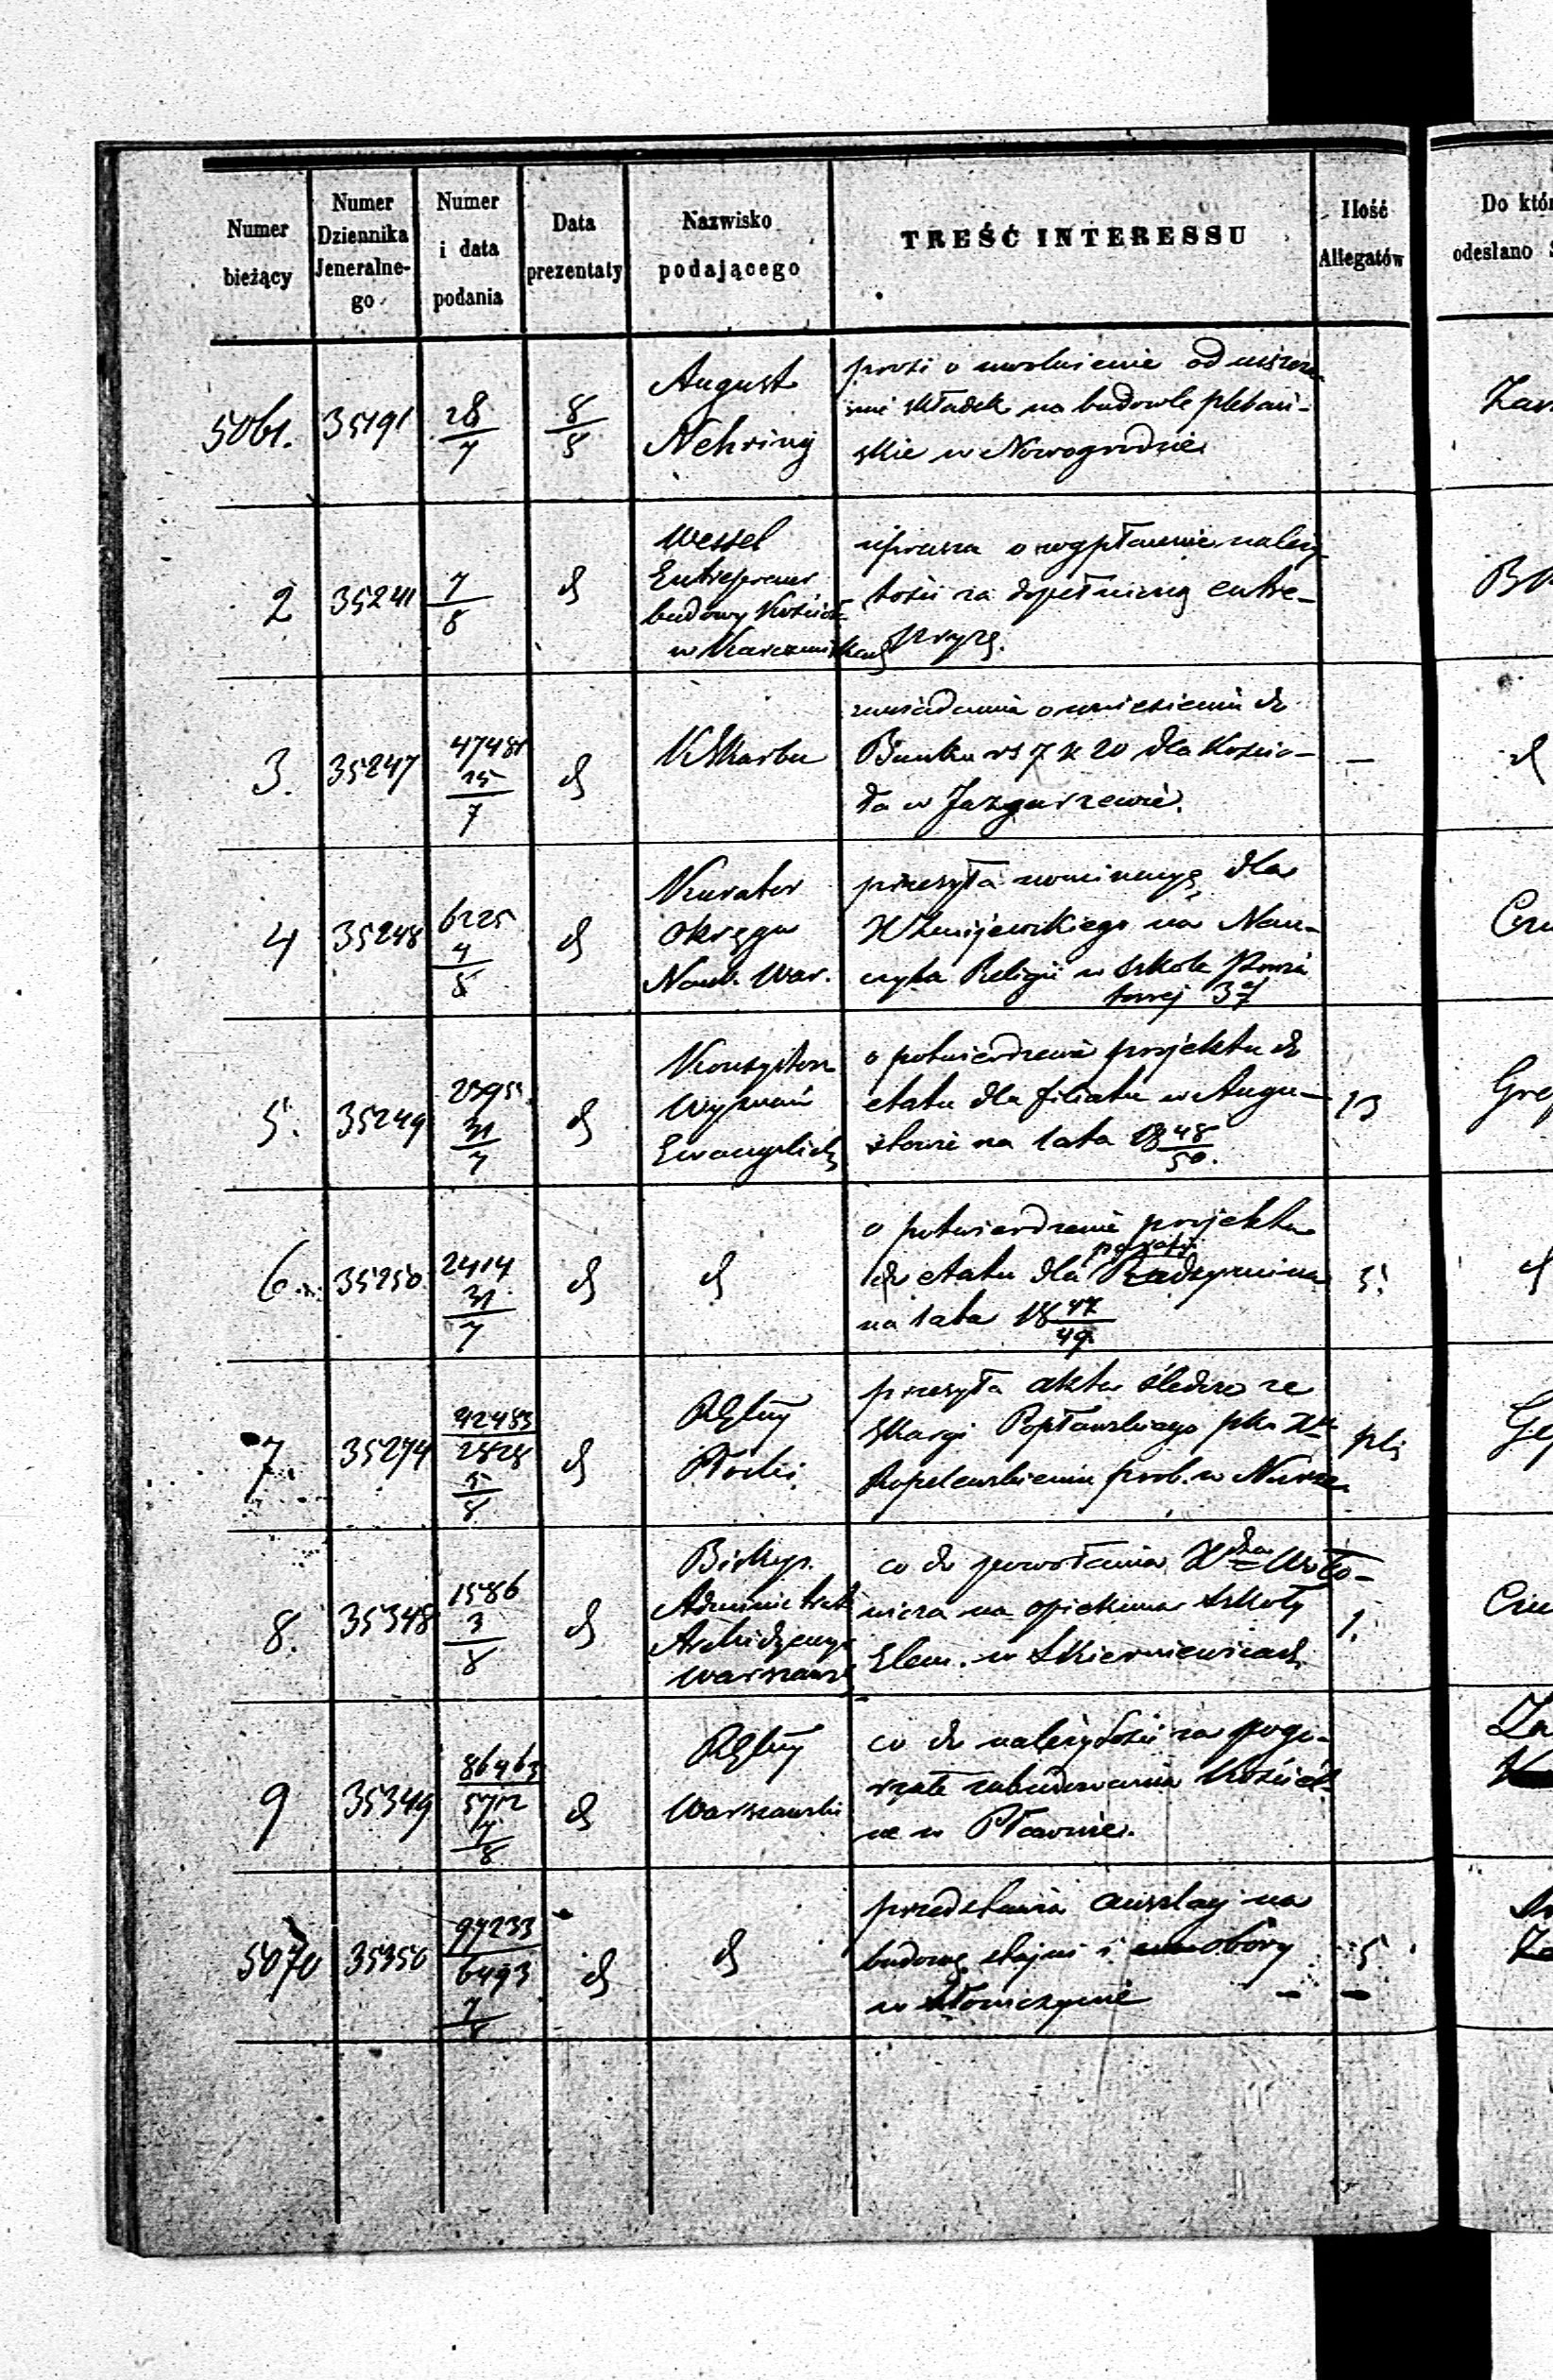 Numer bieżący
Numer Dziennika Jeneralnego
Numer i data podania
Data prezentaty
Nazwisko podającego
TREŚĆ INTERESSU
Ilość Allegatów
Do któr
odesłano S
5061. 35191 28/7 8/8 August Nehring
prosi o uwolnienie od uiszcze-
nia składek na budowle plebań-
skie w Nowogrodzie
2 35241 7/8 d
Wessel
Entreprener
budowy Kościoła
w Karczmiskach
uprasza o wypłacenie należy
tości za dopełnioną entre-
pryzę.
3. 35247 25/7 d KSkarbu
zawiadamia o wniesieniu do
Banku rs 7 k 20 dla Kościo-
ła w Jazgarzewie.
—
d
4 35248 6225 4/8 d
Kurator
Okręgu
Nauk. War.
przesyła nominacyę dla
X Żmijewskiego na Nau-
czyciela Religii w Szkole Powia
towej
5. 35249 31/7 d
Konsystorz
Wyznań
Ewangelick
o potwierdzenie projektu do
etatu dla filiału w Augu-
stowie na lata 18 48/50.
13
6. 35250 2414 31/7 d d
o potwierdzenie projektu
do etatu dla parafii Radzymina
na lata 18 47/49
5.
d
7. 35274 42483/2828 5/8 d
RGbny
Płocki
przesyła akta śledcze ze
skargi Popławskiego pko Xu
Kopelewskiemu prob. w Nurze
plik
8. 35348 1586 3/8 d
Biskup.
Administrat
Archidyecezyi
Warszaws
co do powołania Xdza Woło-
wicza na opiekuna Szkoły
Elem. w Skierniewicach
1.
9 35349 86463/5712 4/8 d
RGbny
Warszawski
co do należytości za pogo-
rzałe zabudowania Kościel-
ne w Pławnie.
5070 35350 97233/6493 7/8 d d
przedstawia anszlag na
budowę stajni i obory
w Słomczynie
5